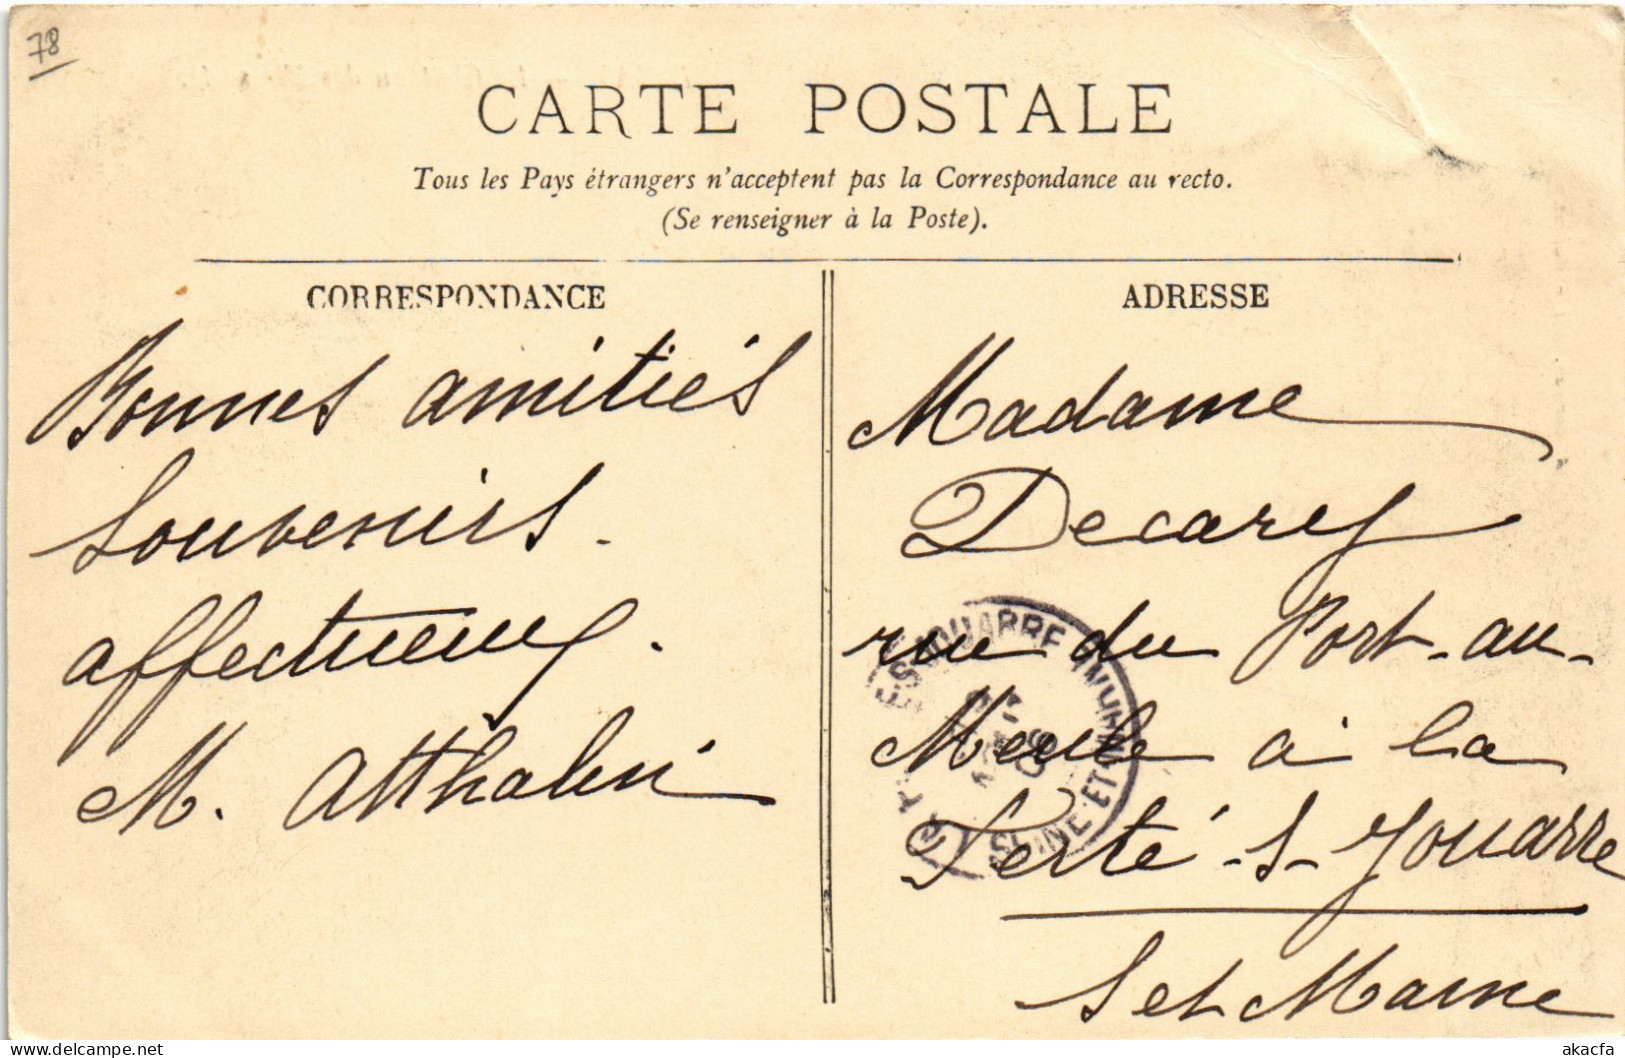 78
CARTE POSTALE
Tous les Pays étrangers n'acceptent pas la Correspondance au recto.
(Se renseigner à la Poste).
CORRESPONDANCE
Bonnes amitiés
Souvenirs.
affectueux.
M. Atthalin
ADRESSE
Madame
Decarey
rue du Port-au-
Meule à la
Ferté-s-Jouarre
S et Marne
JOUARRE
SEINE-ET-MARNE
akacfa